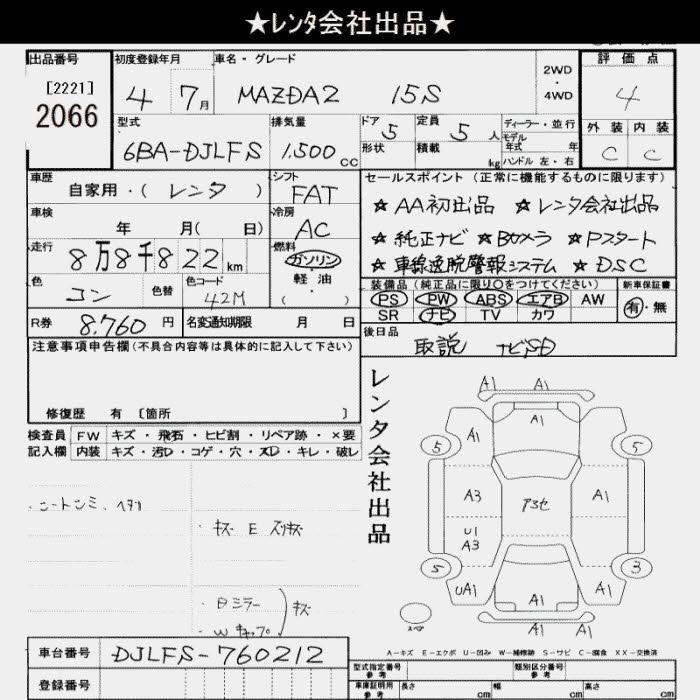 ★レンタ会社出品★
出品番号
[2221]
2066
初度登録年月
4 7月
車名・グレード
MAZDA2 15S
2WD
・
4WD
評価点
4
外装 内装
C C
型式
6BA-DJLFS
排気量
1,500cc
ドア 5
形状
定員 5人
積載 kg
ディーラー・並行
モデル
年式 年
ハンドル 左・右
車歴
自家用・(レンタ)
シフト
FAT
車検
年 月( 日)
冷房
AC
走行
8万8千822km
燃料
ガソリン
・
軽油
( )
色
コン
色替
色コード
42M
R券 8,760円
名変通知期限 月 日
セールスポイント(正常に機能するものに限ります)
★AA初出品 ★レンタ会社出品
★純正ナビ ★Bカメラ ★Pスタート
★車線逸脱警報システム ★DSC
装備品(純正品に限り○をつけてください)
PS PW ABS エアB AW
SR ナビ TV カワ
新車保証書
有・無
後日品
取説 ナビSD
注意事項申告欄(不具合内容等は具体的に記入して下さい)
修復歴 有 [箇所 ]
検査員 FW キズ・飛石・ヒビ割・リペア跡・×要
記入欄 内装 キズ・汚D・コゲ・穴・スD・キレ・破レ
・キズ E スリキズ
・Bミラー
・Wキャップ
キズ
レンタ会社出品
A1 A1
A1
A1
5 5
A3
A1
U1
A3
アヨセ
5 3
UA1
A1
A1
A1 A1
スペア
A-キズ E-エクボ U-凹み W-補修跡 S-サビ C-腐食 XX-交換済
車台番号 DJLFS-760212
登録番号
型式指定番号
参考
類別区分番号
参考
車庫証明用
参考
長さ cm
幅 cm
高さ cm